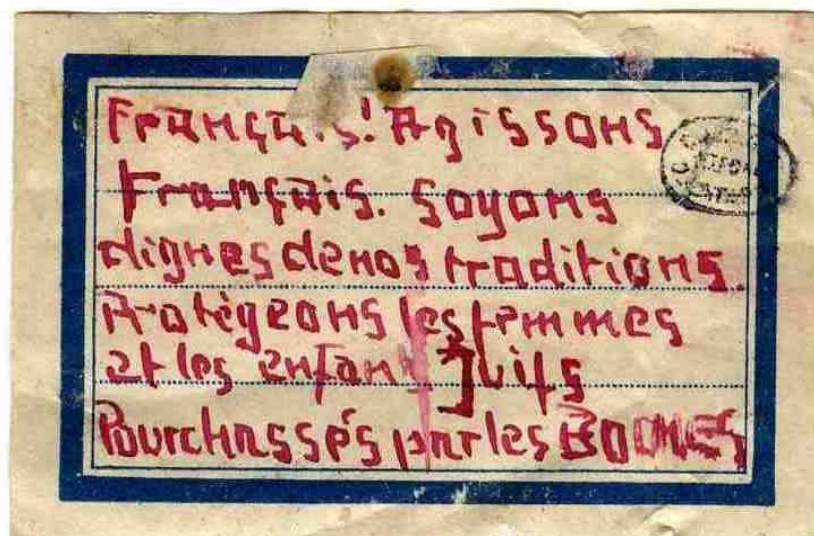 Français! Agissons
Français. soyons
dignes de nos traditions.
Protégeons les femmes
et les enfants Juifs
Pourchassés par les BOCHES